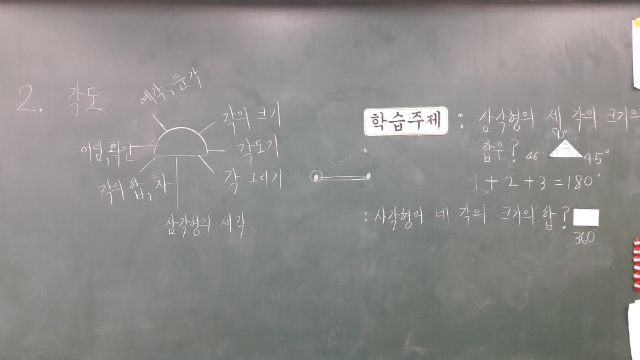 2. 각도
예각, 둔각
각의 크기
각도기
각 그리기
어림, 확인
각의 합, 차
삼각형의 세 각
학습주제 : 삼각형의 세 각의 크기의
합은?
90°
45°
1+2+3=180°
:사각형의 네 각의 크기의 합?
360